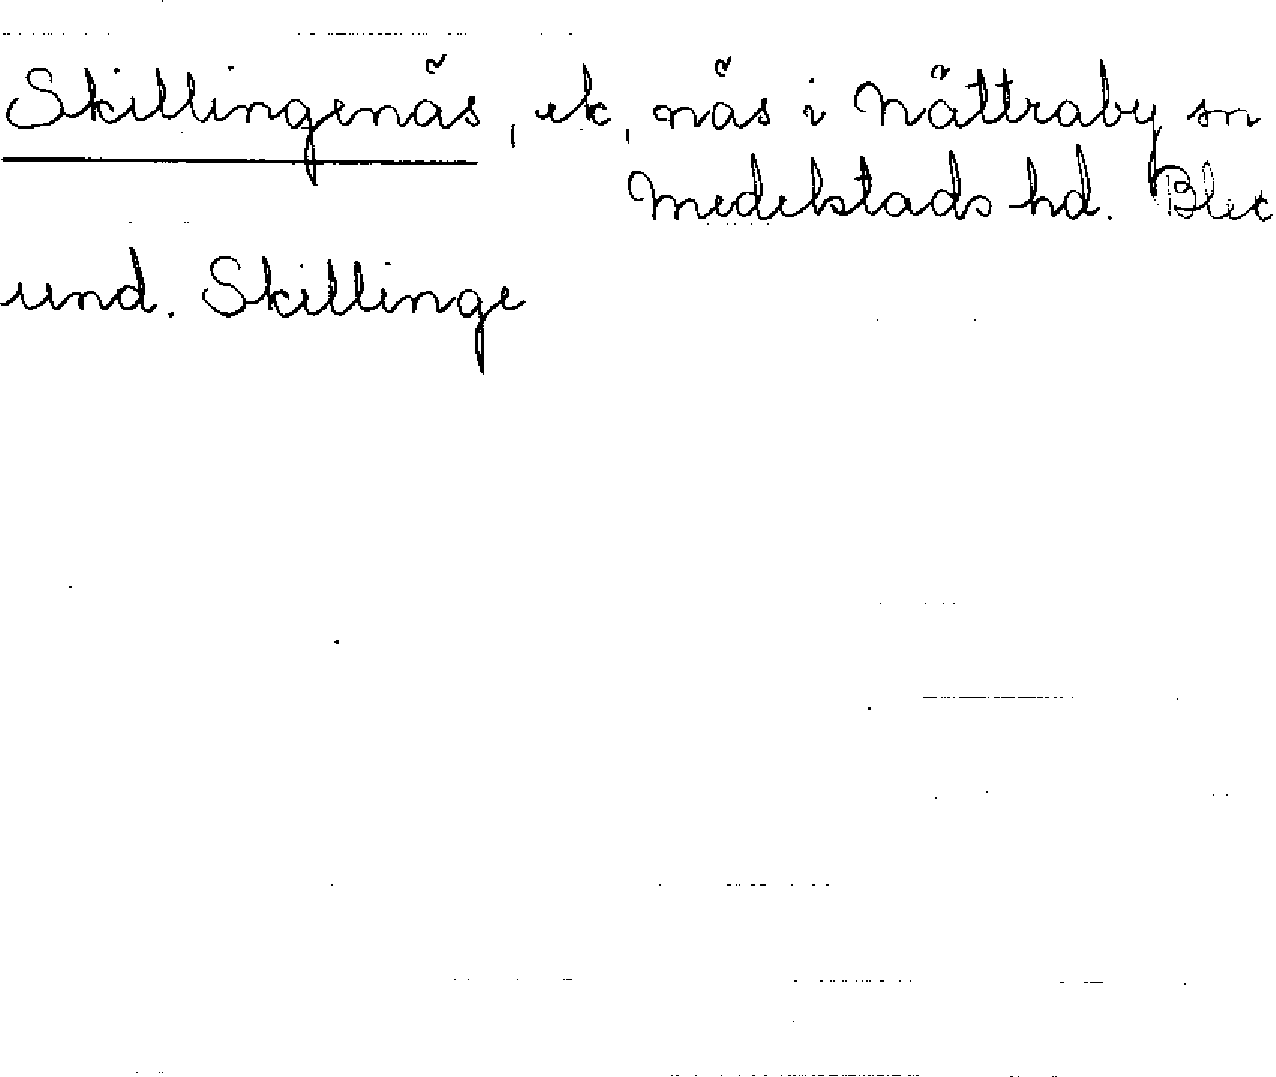 Skillingenäs, ek, näs i Nättraby sn
Medelstads hd. Blec
und. Skillinge